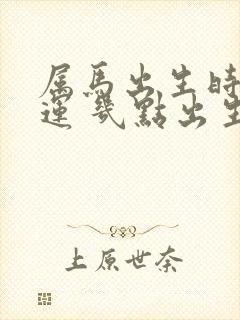 属馬出生時
運 幾點出生
上原世奈